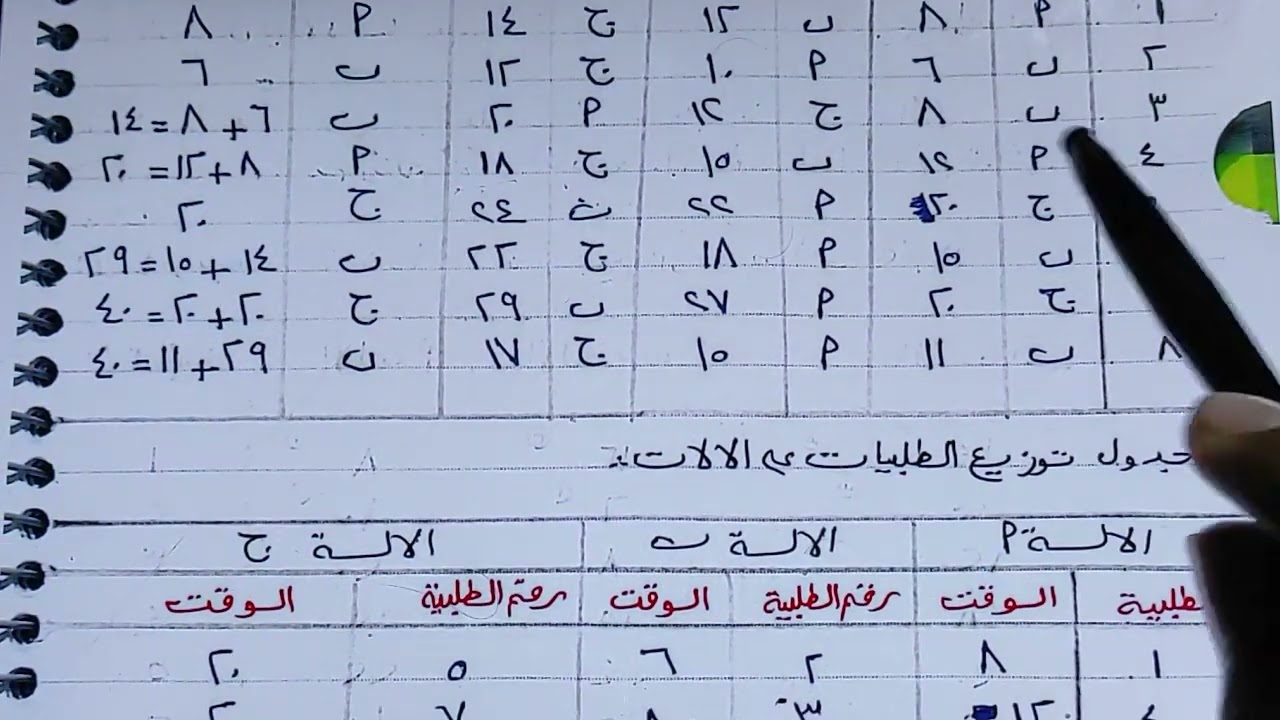 ١ م ٨ ب ١٢ ج ١٤ م ٨
٢ ب ٦ م ١٠ ج ١٢ ب ٦
٣ ب ٨ ج ١٢ م ٢٠ ب ٦ + ٨ = ١٤
٤ م ١٢ ب ١٥ ج ١٨ م ٨ + ١٢ = ٢٠
ج ٢٠ م ٢٢ ب ٢٤ ج ٢٠
ب ١٥ م ١٨ ج ٢٢ ب ١٤ + ١٥ = ٢٩
ج ٢٠ م ٢٧ ب ٢٩ ج ٢٠ + ٢٠ = ٤٠
٨ ب ١١ م ١٥ ج ١٧ ب ٢٩ + ١١ = ٤٠
جدول توزيع الطلبيات عم الالات :.
الالة م الالة ب الالة ج
طلبية الوقت رقم الطلبية الوقت رقم الطلبية الوقت
١ ٨ ٢ ٦ ٥ ٢٠
٤ ١٢ ٣ ٨ ٧